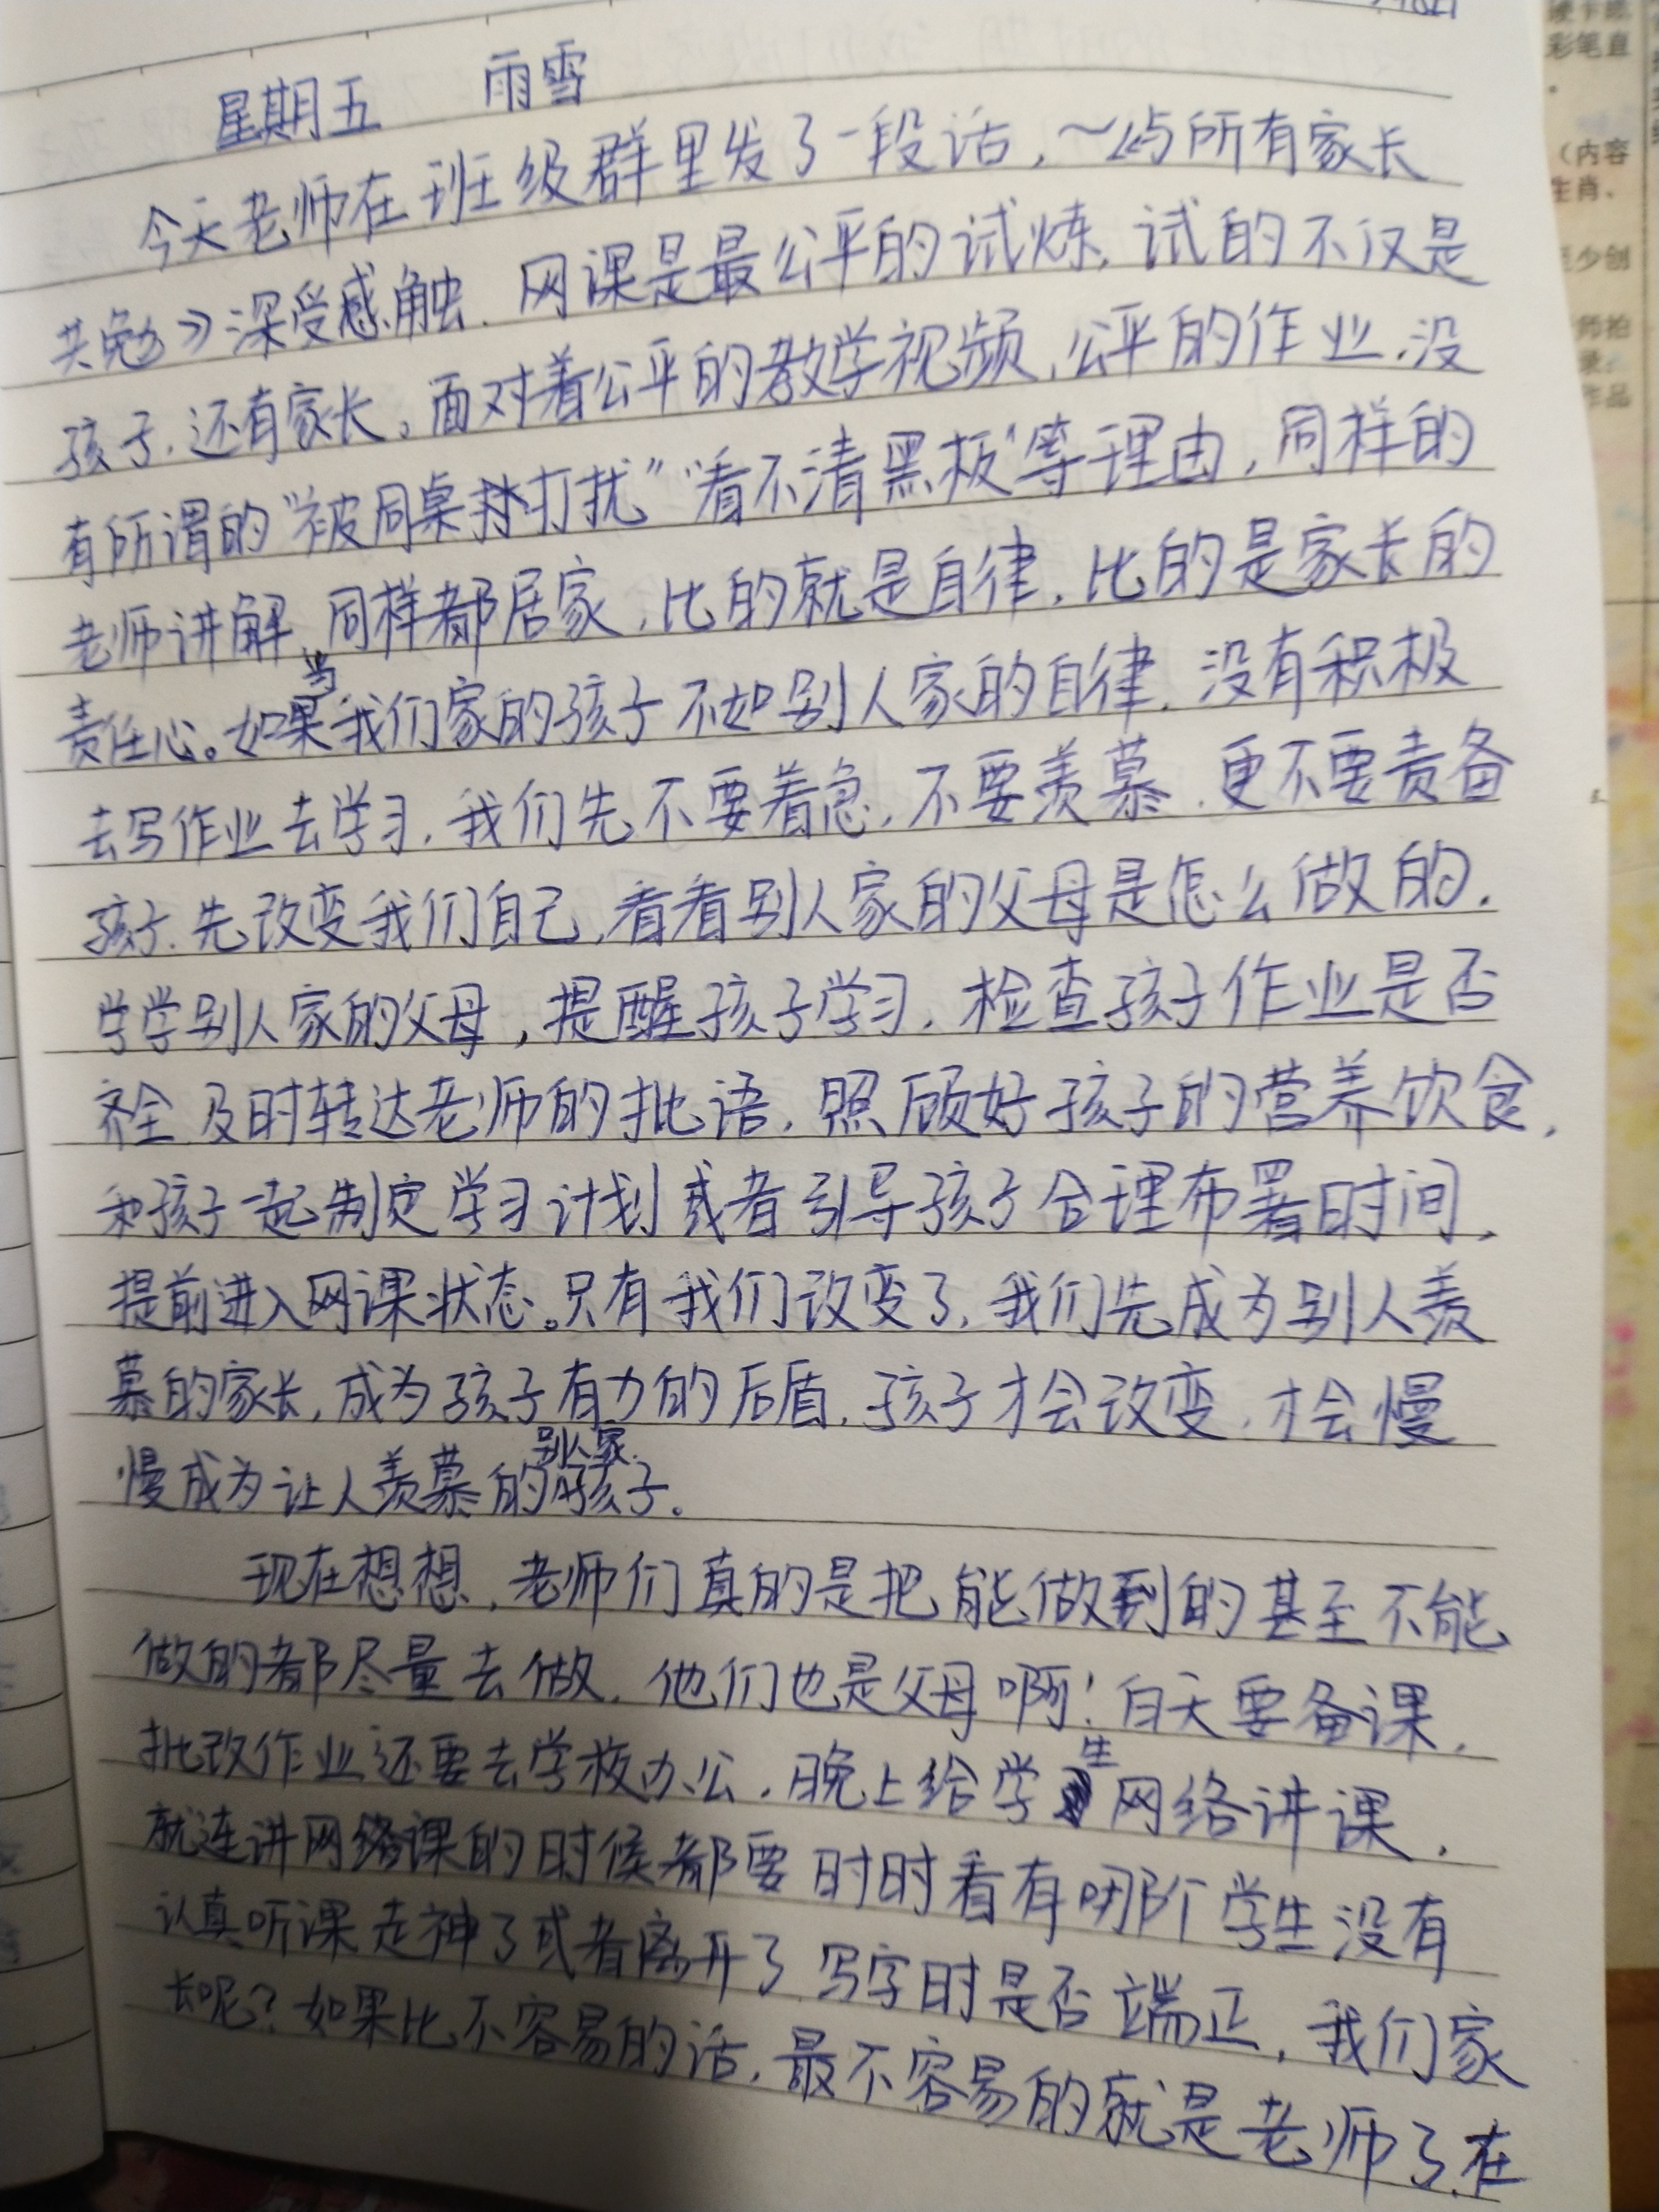 星期五 雨雪
今天老师在班级群里发了一段话，～《与所有家长
共勉》深受感触.网课是最公平的试炼，试的不仅是
孩子，还有家长。面对着公平的教学视频，公平的作业，没
有所谓的“被同桌打扰”“看不清黑板”等理由，同样的
老师讲解，同样都居家，比的就是自律，比的是家长的
责任心。如果当我们家的孩子不如别人家的自律，没有积极
去写作业去学习，我们先不要着急，不要羡慕，更不要责备
孩子.先改变我们自己，看看别人家的父母是怎么做的.
学学别人家的父母，提醒孩子学习，检查孩子作业是否
齐全 及时转达老师的批语，照顾好孩子的营养饮食，
和孩子一起制定学习计划或者引导孩子合理布署时间，
提前进入网课状态。只有我们改变了，我们先成为别人羡
慕的家长，成为孩子有力的后盾，孩子才会改变，才会慢
慢成为让人羡慕的别人家孩子。
现在想想，老师们真的是把能做到的甚至不能
做的都尽量去做，他们也是父母啊！白天要备课，
批改作业还要去学校办公，晚上给学生网络讲课，
就连讲网络课的时候都要时时看有哪个学生没有
认真听课走神了或者离开了 写字时是否端正，我们家
长呢？如果比不容易的话，最不容易的就是老师了.在
硬卡纸
彩笔直
（内容
生肖、
至少创
师拍
录：
作品